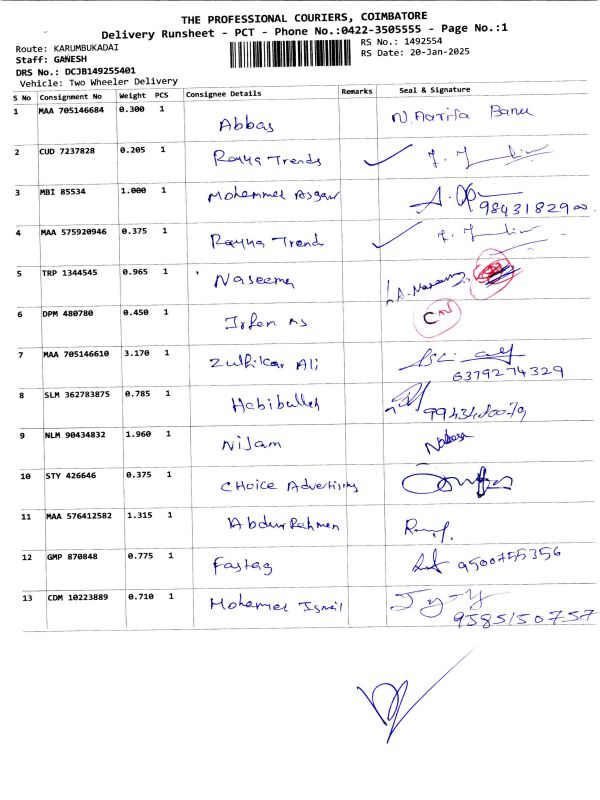 THE PROFESSIONAL COURIERS, COIMBATORE
Delivery Runsheet - PCT - Phone No.:0422-3505555 - Page No.:1
Route: KARUMBUKADAI
RS No.: 1492554
Staff: GANESH
RS Date: 20-Jan-2025
DRS No.: DCJB149255401
Vehicle: Two Wheeler Delivery
S No Consignment No Weight PCS Consignee Details Remarks Seal & Signature
1 MAA 705146684 0.300 1 Abbas N. Aarifa Banu
2 CUD 7237828 0.205 1 Rayya Trends
3 MBI 85534 1.000 1 Mohemmed Asgar
9843182900
4 MAA 575920946 0.375 1 Rayya Trend
5 TRP 1344545 0.965 1 Naseema
6 DPM 480780 0.450 1 Irfen
7 MAA 705146610 3.170 1 Zulfikar Ali
6379274329
8 SLM 362783875 0.785 1 Habibulleh
9 NLM 90434832 1.960 1 Nijam
10 STY 426646 0.375 1 CHoice Advertising
11 MAA 576412582 1.315 1 Abdur Rahmen
12 GMP 870848 0.775 1 Fastag 9500755356
13 CDM 10223889 0.710 1 Mohemed Ismail
9585150757